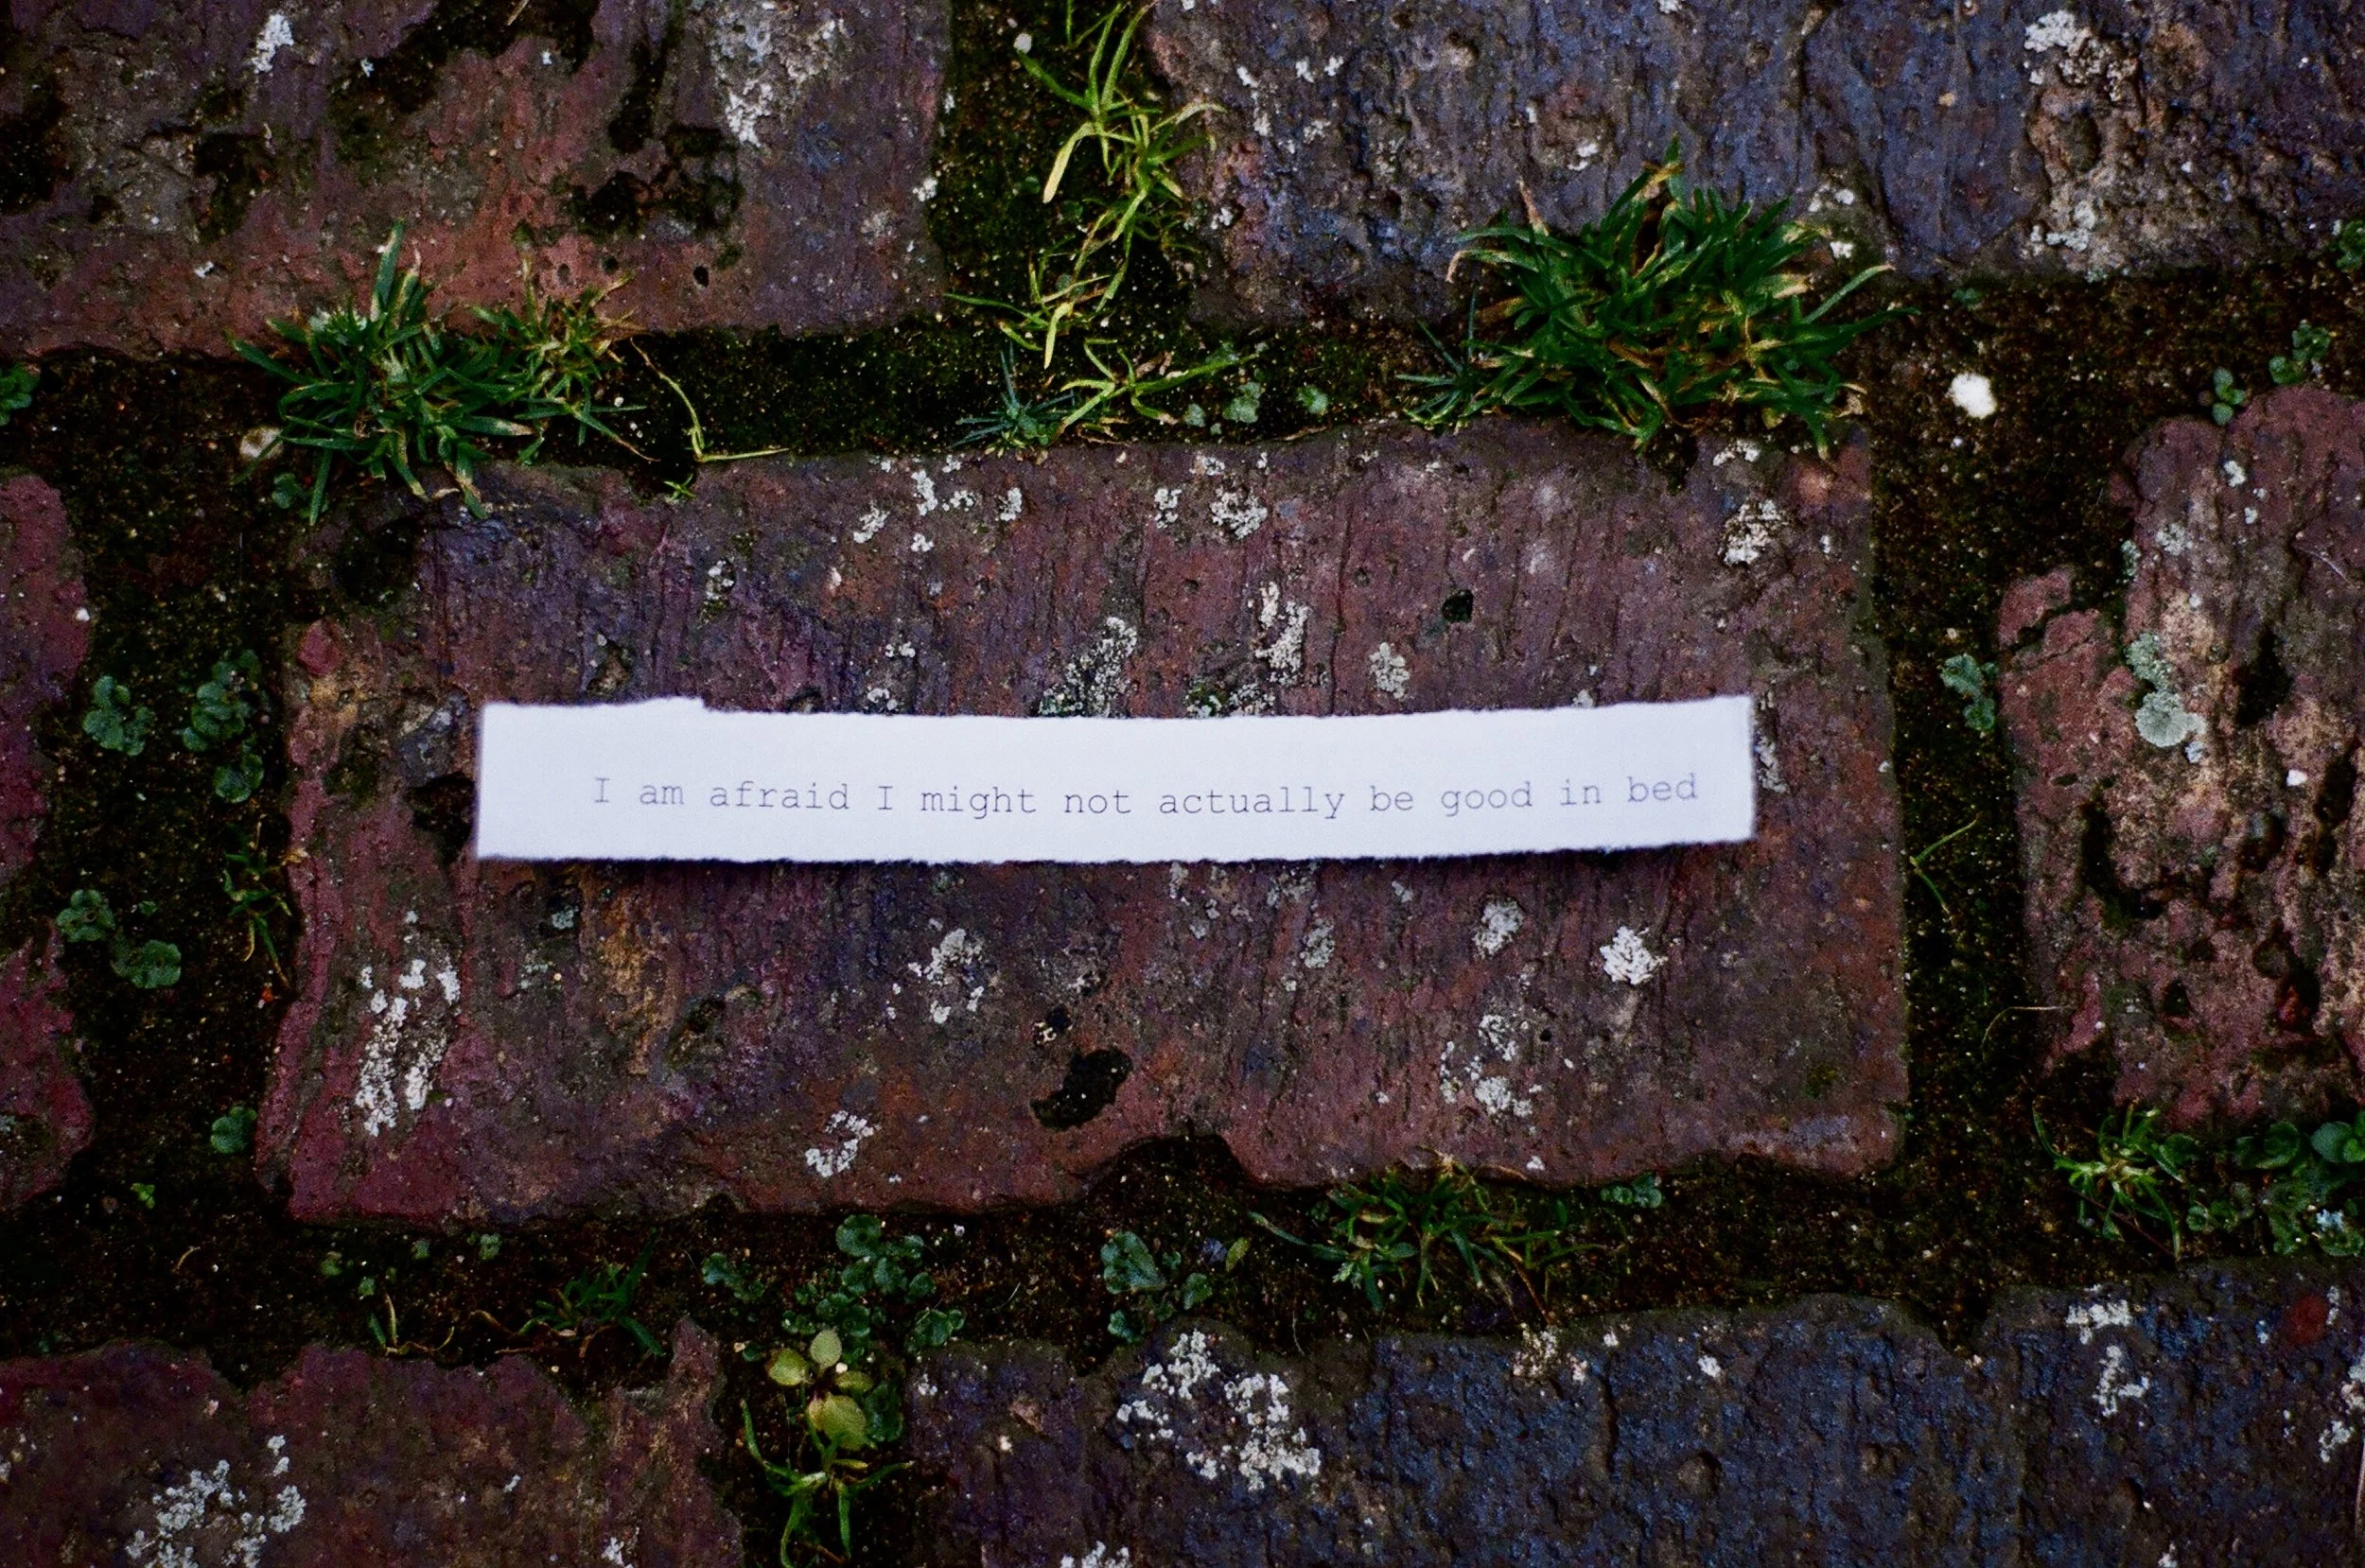 I am afraid I might not actually be good in bed